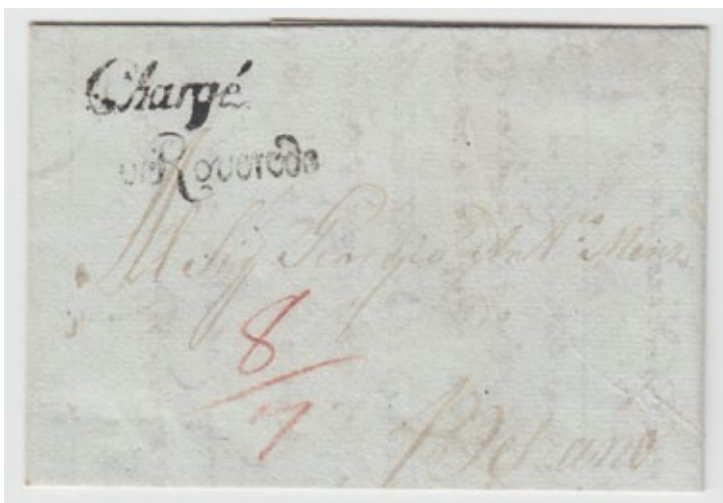 Chargé.
v: Roveredo
Al Sig Giorgio Ant.º Menz
8/7
Bolzano